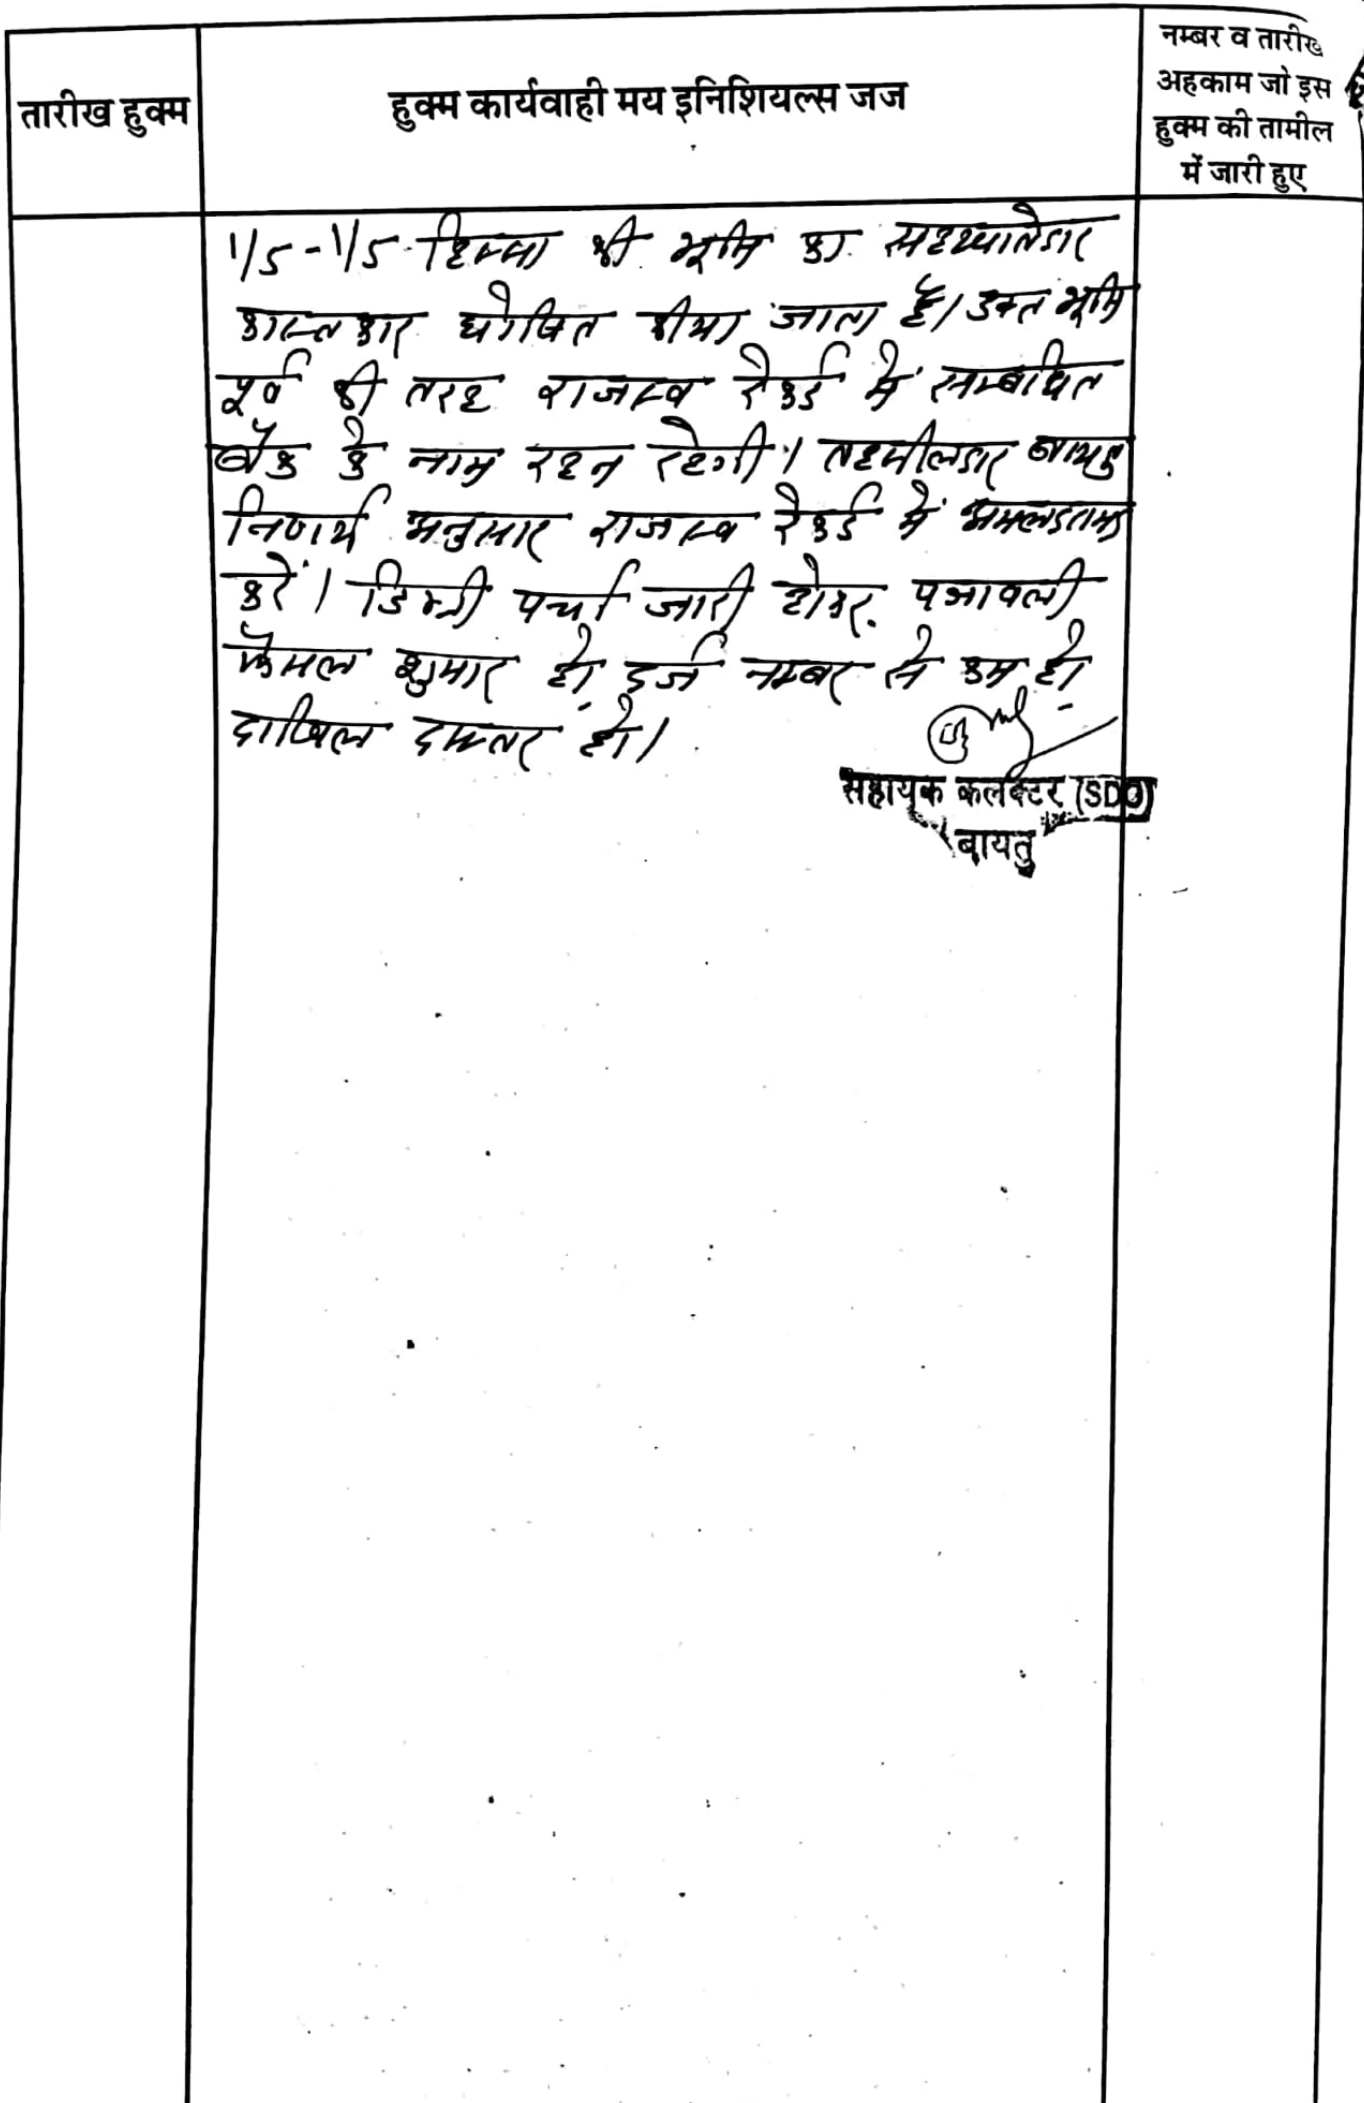 तारीख हुक्म
हुक्म कार्यवाही मय इनिशियल्स जज
नम्बर व तारीख
अहकाम जो इस
हुक्म की तामील
में जारी हुए
1/5-1/5 हिस्सा की भूमि का सहखातेदार
कास्तकार घोषित कीया जाता है। उक्त भूमि
पूर्व की तरह राजस्व रेकर्ड में सम्बंधित
बैंक के नाम रहन रहेगी। तहसीलदार बायतु
निणर्य अनुसार राजस्व रेकर्ड में अमलदरामद
करें। डिक्री पर्चा जारी होकर पत्रावली
फैसल शुमार हो दर्ज नम्बर से कम हो
दाखिल दफ्तर हो।
सहायक कलक्टर (SDO)
बायतु